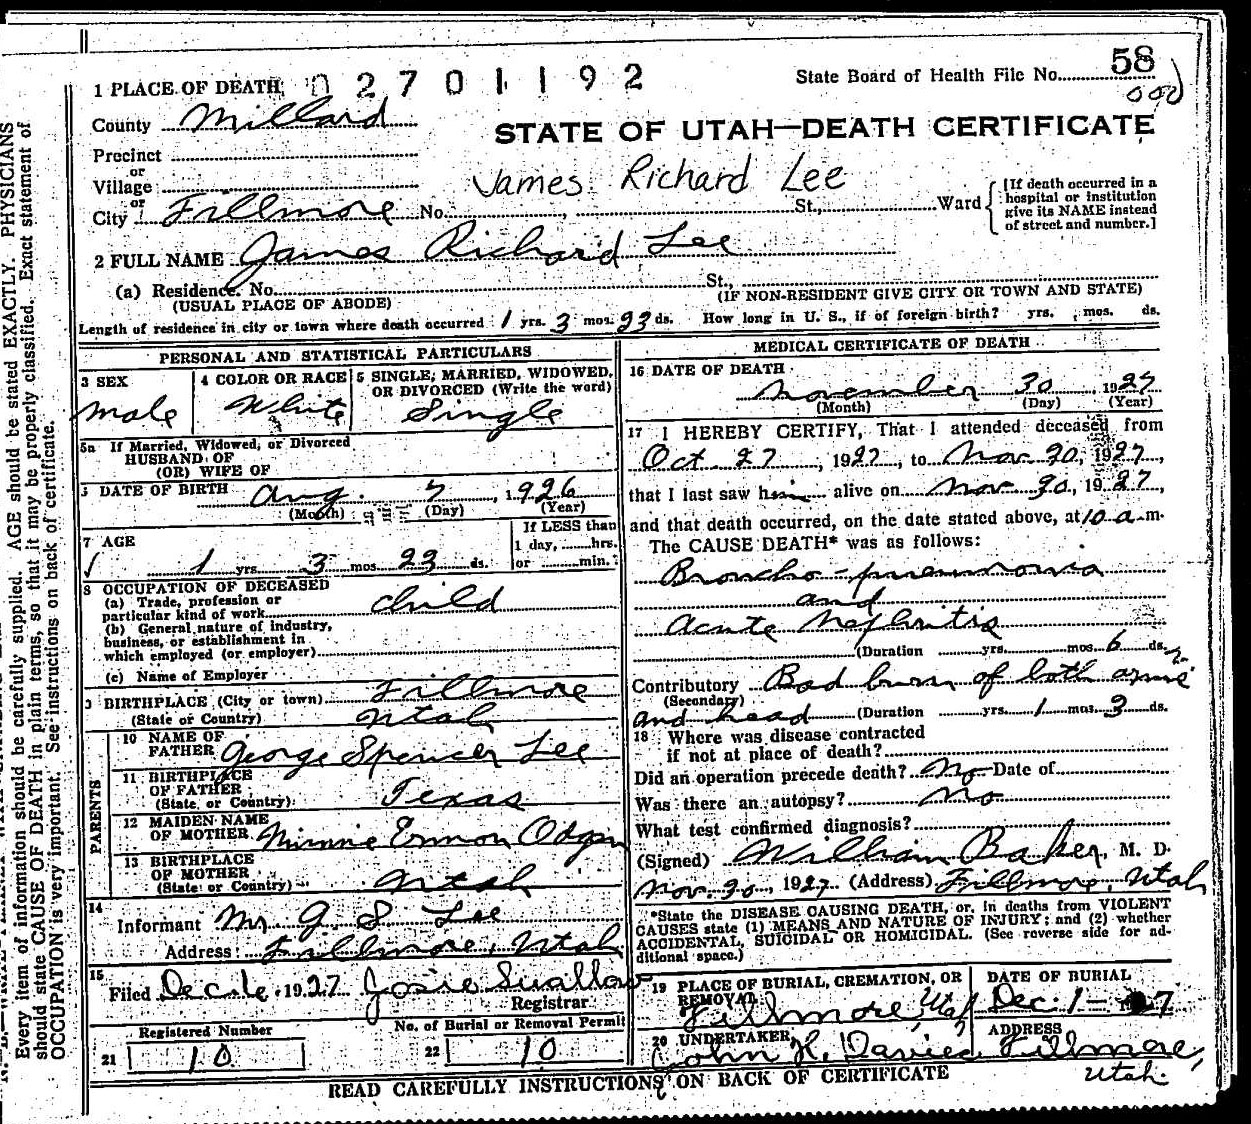 58
State Board of Health File No.
1 PLACE OF DEATH
0 2 7 0 1 1 9 2
County Millard
STATE OF UTAH—DEATH CERTIFICATE
Precinct
or
Village
James Richard Lee
or
City Fillmore No. , St., Ward
[If death occurred in a
hospital or institution
give its NAME instead
of street and number.]
2 FULL NAME James Richard Lee
(a) Residence. No. St.,
(USUAL PLACE OF ABODE) (IF NON-RESIDENT GIVE CITY OR TOWN AND STATE)
Length of residence in city or town where death occurred 1 yrs. 3 mos. 23 ds. How long in U. S., if of foreign birth? yrs. mos. ds.
PERSONAL AND STATISTICAL PARTICULARS
3 SEX
Male
4 COLOR OR RACE
White
5 SINGLE, MARRIED, WIDOWED,
OR DIVORCED (Write the word)
Single
5a If Married, Widowed, or Divorced
HUSBAND OF
(OR) WIFE OF
DATE OF BIRTH Aug. 7, 1926
(Month) (Day) (Year)
7 AGE
1 yrs 3 mos 23 ds.
If LESS than
1 day, hrs.
or min.
8 OCCUPATION OF DECEASED
(a) Trade, profession or
particular kind of work child
(b) General nature of industry,
business, or establishment in
which employed (or employer)
(c) Name of Employer
BIRTHPLACE (City or town) Fillmore
(State or Country) Utah
PARENTS
10 NAME OF
FATHER George Spencer Lee
11 BIRTHPLACE
OF FATHER
(State or Country) Texas
12 MAIDEN NAME
OF MOTHER Minnie
13 BIRTHPLACE
OF MOTHER
(State or Country) Utah
14
Informant Mr G S Lee
Address Fillmore, Utah
15
Filed Dec 1927 Josie Swallow
Registrar
Registered Number
21 10
No. of Burial or Removal Permit
22 10
MEDICAL CERTIFICATE OF DEATH
16 DATE OF DEATH
November 30, 1927
(Month) (Day) (Year)
17 I HEREBY CERTIFY, That I attended deceased from
Oct 27, 1927, to Nov. 30, 1927,
that I last saw him alive on Nov. 30, 1927,
and that death occurred, on the date stated above, at 10 a.m.
The CAUSE DEATH* was as follows:
Broncho-pneumonia
and
Acute Nephritis
(Duration yrs. mos. 6 ds.
Contributory Bad burn of both arms
(Secondary)
and head (Duration yrs. 1 mos. 3 ds.
18 Where was disease contracted
if not at place of death?
Did an operation precede death? No Date of
Was there an autopsy? No
What test confirmed diagnosis?
(Signed) William Baker, M. D.
Nov. 30, 1927 (Address) Fillmore, Utah
*State the DISEASE CAUSING DEATH, or, in deaths from VIOLENT
CAUSES state (1) MEANS AND NATURE OF INJURY; and (2) whether
ACCIDENTAL, SUICIDAL OR HOMICIDAL. (See reverse side for ad-
ditional space.)
19 PLACE OF BURIAL, CREMATION, OR
REMOVAL
Fillmore, Utah
DATE OF BURIAL
Dec. 1—
20 UNDERTAKER
John H. Davies
ADDRESS
Fillmore,
Utah.
READ CAREFULLY INSTRUCTIONS ON BACK OF CERTIFICATE
Every item of information should be carefully supplied. AGE should be stated EXACTLY. PHYSICIANS
should state CAUSE OF DEATH in plain terms, so that it may be properly classified. Exact statement of
OCCUPATION is very important. See instructions on back of certificate.